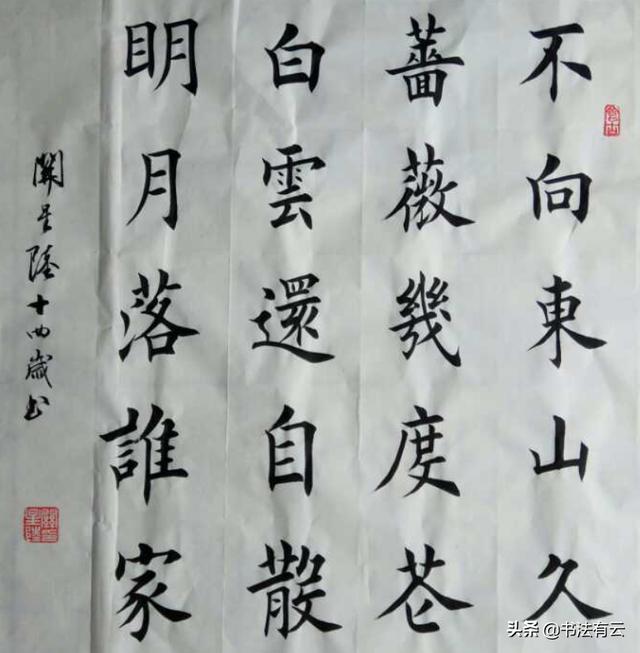 不向東山久
薔薇幾度花
白雲還自散
眀月落誰家
關星陸十四歲书
头条 @书法有云